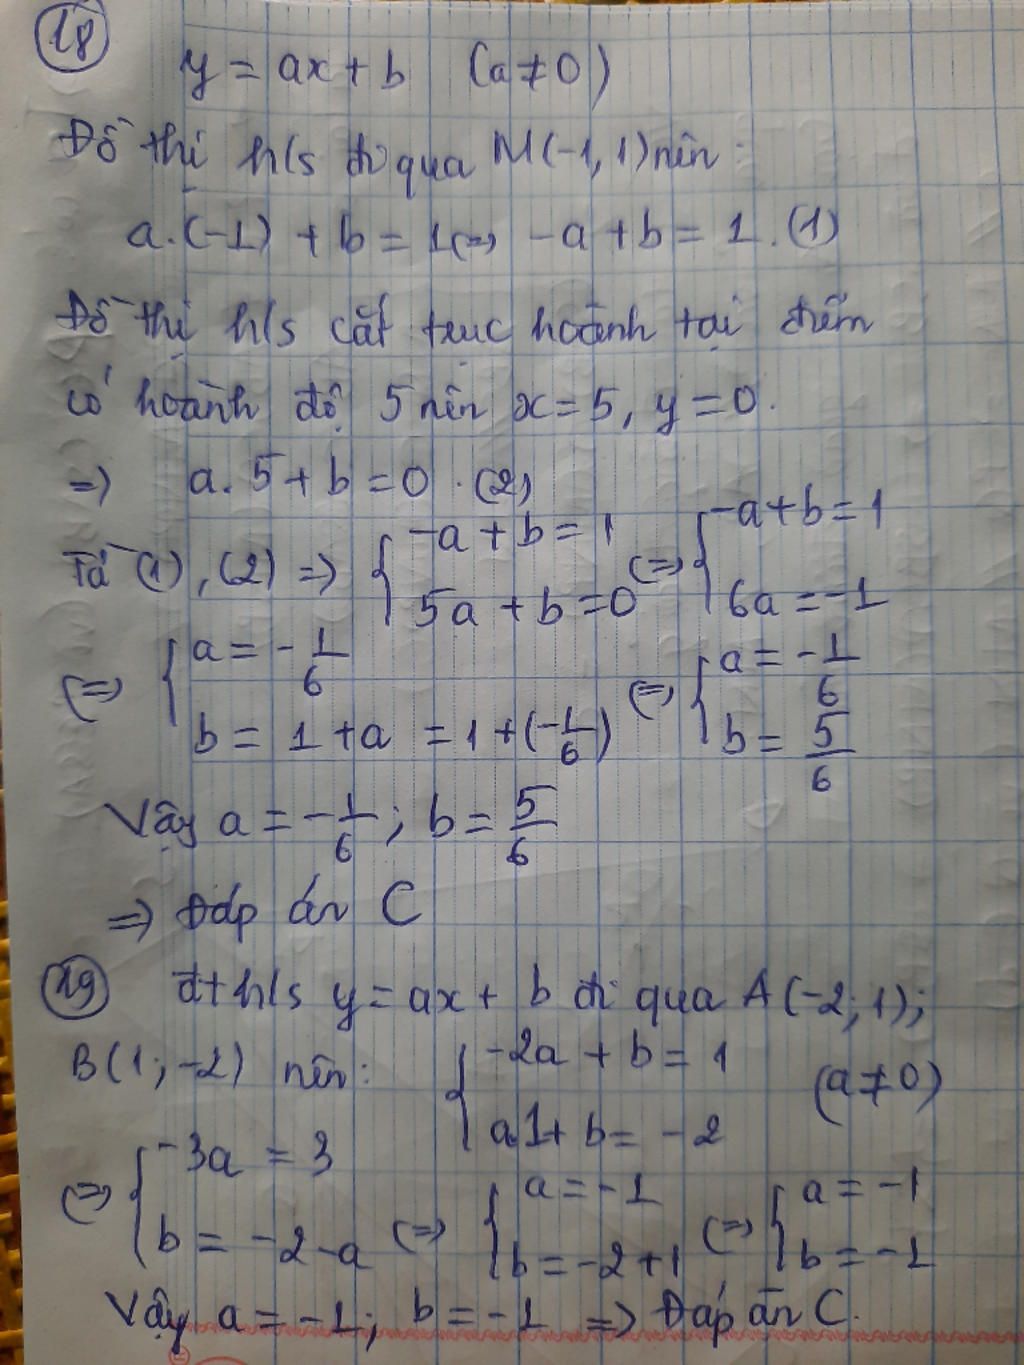 18
y = ax + b (a ≠ 0)
Đồ thị h/s đi qua M(-1, 1) nên:
a.(-1) + b = 1 <=> -a + b = 1. (1)
Đồ thị h/s cắt trục hoành tại điểm
có hoành độ 5 nên x = 5, y = 0.
=> a. 5 + b = 0. (2)
Từ (1), (2) => { -a + b = 1 ; 5a + b = 0 <=> { -a + b = 1 ; 6a = -1
<=> { a = -1/6 ; b = 1 + a = 1 + (-1/6) <=> { a = -1/6 ; b = 5/6
Vậy a = -1/6 ; b = 5/6
=> Đáp án C
19 đt h/s y = ax + b đi qua A(-2; 1);
B(1; -2) nên: { -2a + b = 1 ; a1 + b = -2 (a ≠ 0)
<=> { -3a = 3 ; b = -2 - a <=> { a = -1 ; b = -2 + 1 <=> { a = -1 ; b = -1
Vậy a = -1; b = -1 => Đáp án C.